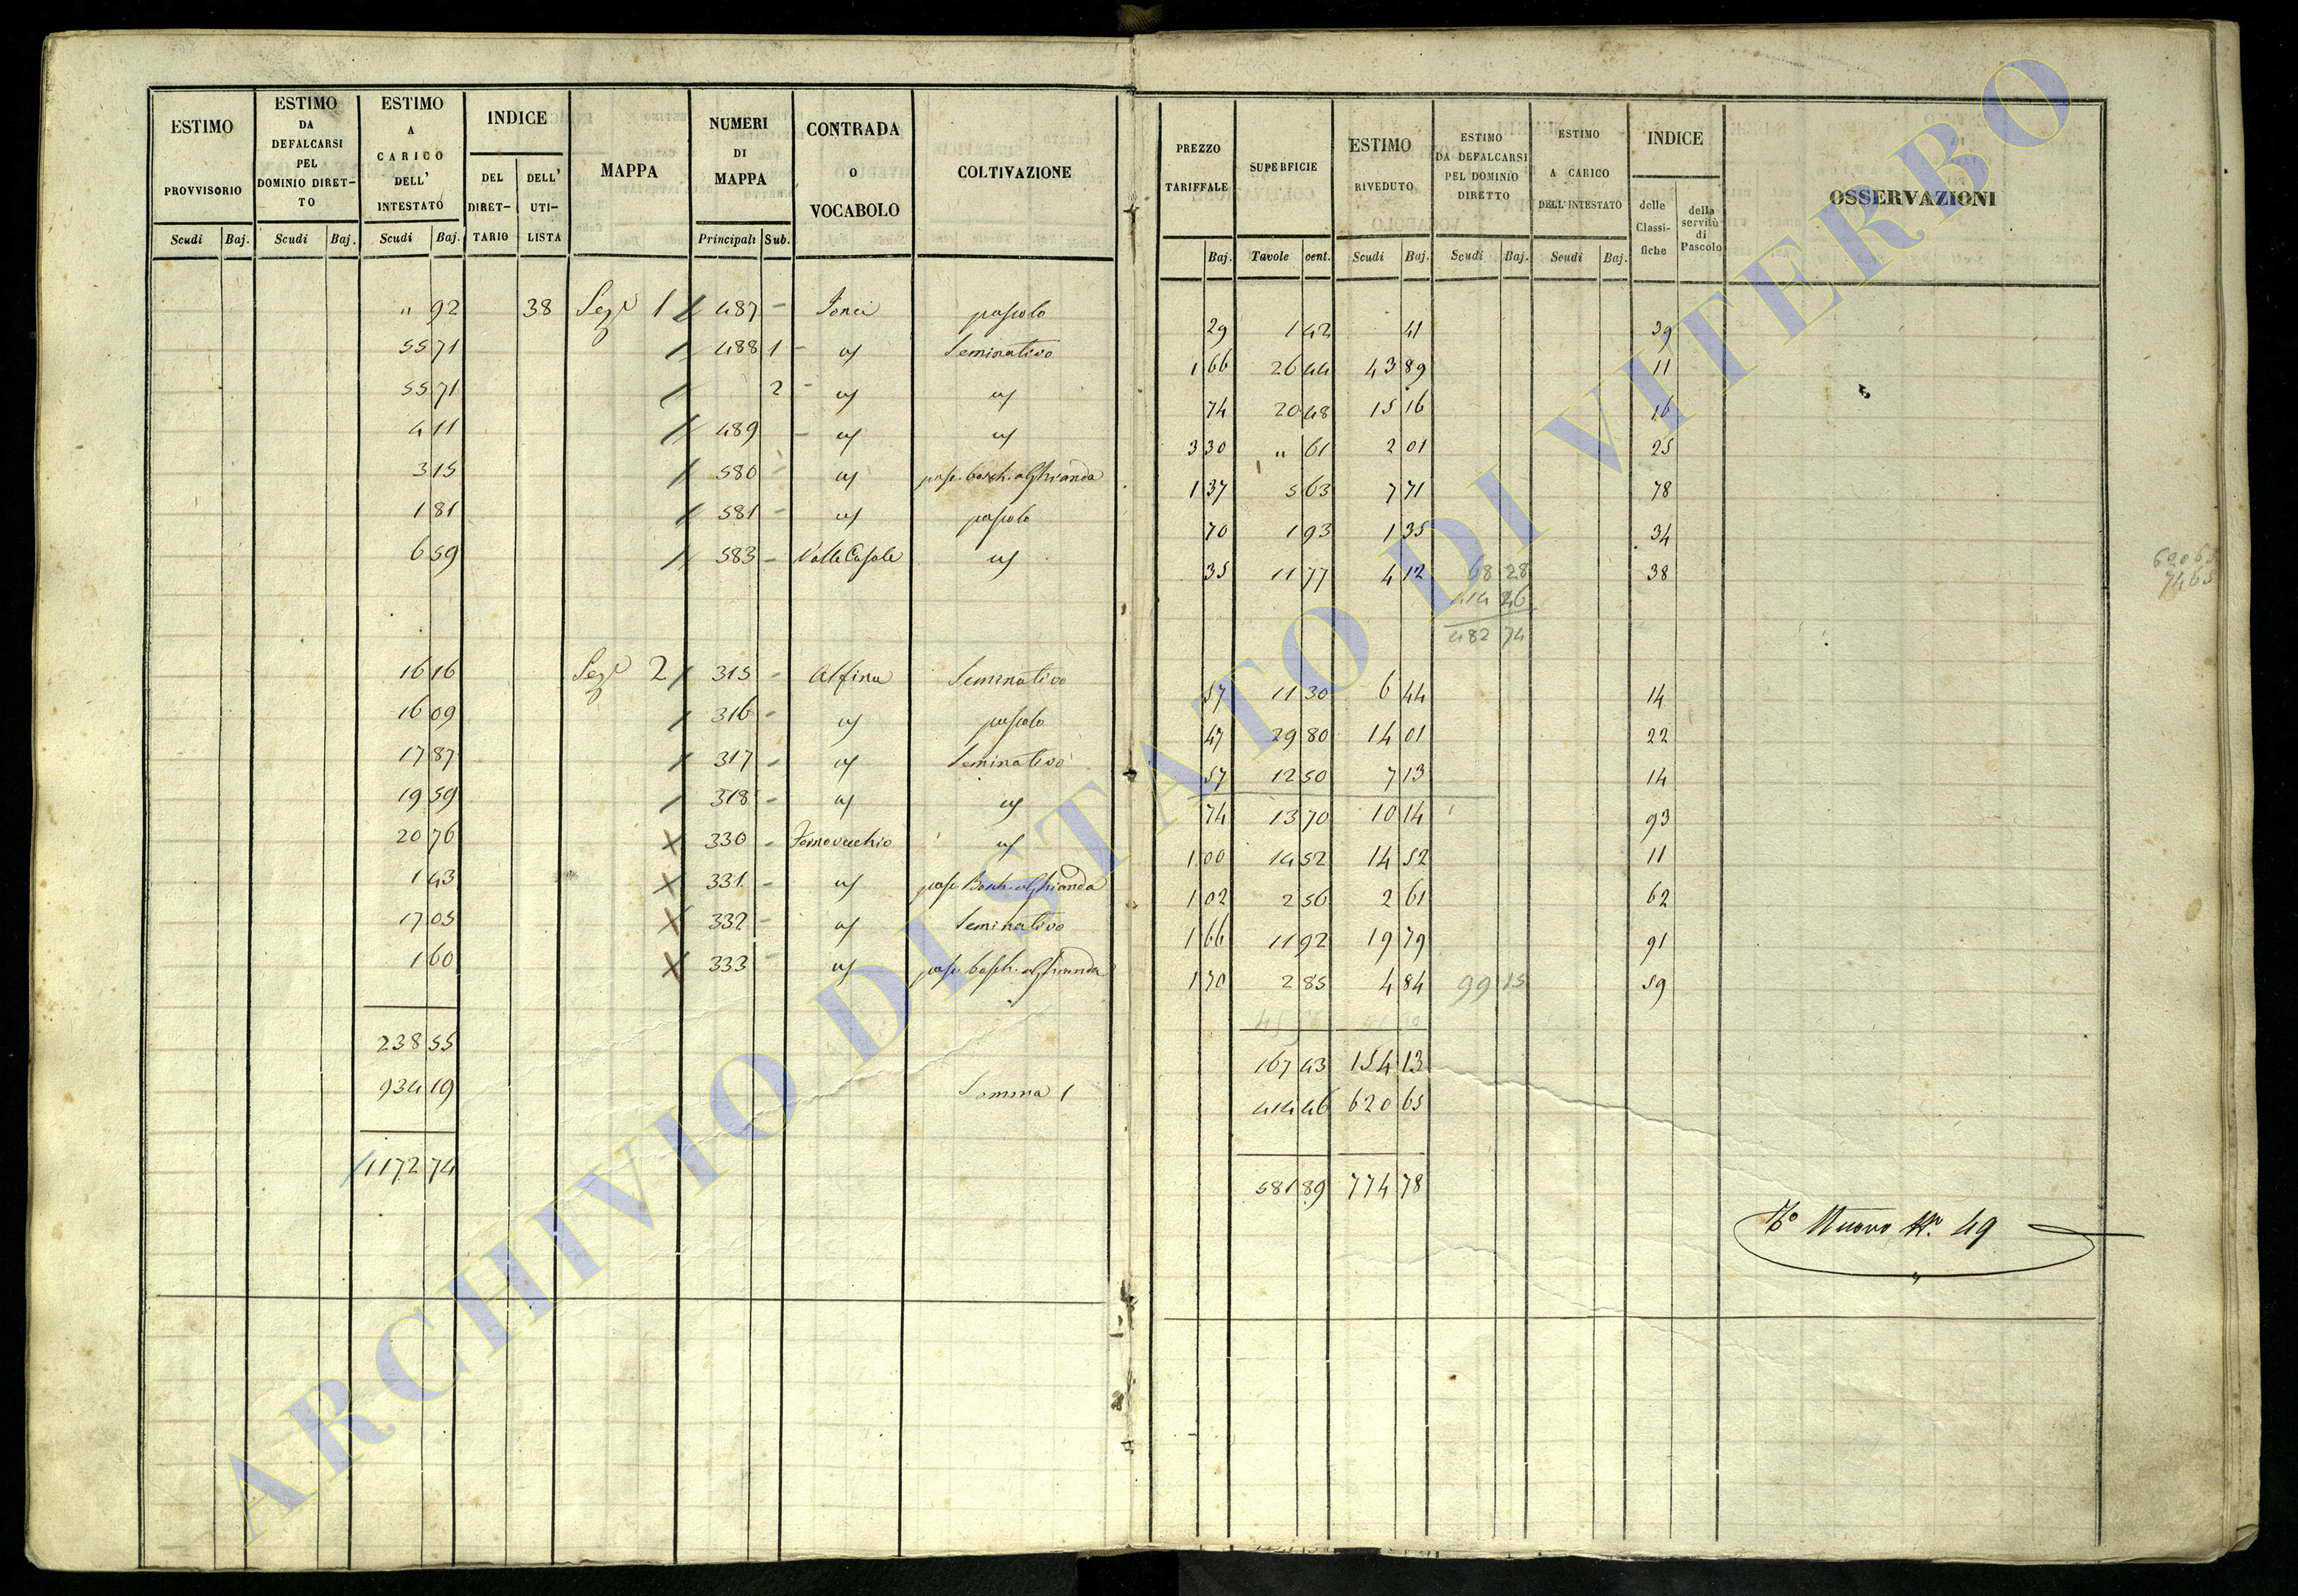 ESTIMO PROVVISORIO
ESTIMO DA DEFALCARSI PEL DOMINIO DIRET-TO
ESTIMO A CARICO DELL' INTESTATO
INDICE
DEL DIRET-TARIO
DELL' UTI-LISTA
MAPPA
NUMERI DI MAPPA
CONTRADA O VOCABOLO
COLTIVAZIONE
Scudi Baj. Scudi Baj. Scudi Baj. Principali Sub.
" 92 38 Sez.e 1 487 -
55 71 488 1 - id Seminativo
55 71 2 - id id
4 11 489 - id id
3 15 580 - id pasc. bosch. a Ghianda
1 81 581 - id pascolo
6 59 583 - Valle Casale id
16 16 Sez.e 2 315 - Alfina Seminativo
16 09 316 - id pascolo
17 87 317 - id Seminativo
19 59 318 - id id
20 76 330 - Fornovecchio id
1 43 331 - id pasc. Bosch. a Ghianda
17 05 332 - id Seminativo
1 60 333 - id pasc. bosch. a Ghianda
238 55
934 19 Somma 1
1172 74
PREZZO TARIFFALE
SUPERFICIE
ESTIMO RIVEDUTO
ESTIMO DA DEFALCARSI PEL DOMINIO DIRETTO
ESTIMO A CARICO DELL'INTESTATO
INDICE
delle Classi-fiche
della servitù di Pascolo
OSSERVAZIONI
Baj. Tavole cent. Scudi Baj. Scudi Baj. Scudi Baj.
29 1 42 41 39
1 66 26 44 43 89 11
74 20 48 15 16 16
3 30 " 61 2 01 25
1 37 5 63 7 71 78
70 1 93 1 35 34
35 11 77 4 12 68 28 38
414 46
482 74
57 11 30 6 44 14
47 29 80 14 01 22
57 12 50 7 13 14
74 13 70 10 14 93
1 00 14 52 14 52 11
1 02 2 56 2 61 62
1 66 11 92 19 79 91
1 70 2 85 4 84 99 15 59
167 43 154 13
414 46 620 65
581 89 774 78
620 65
74 65
Nuovo N. 49
ARCHIVIO DI STATO DI VITERBO